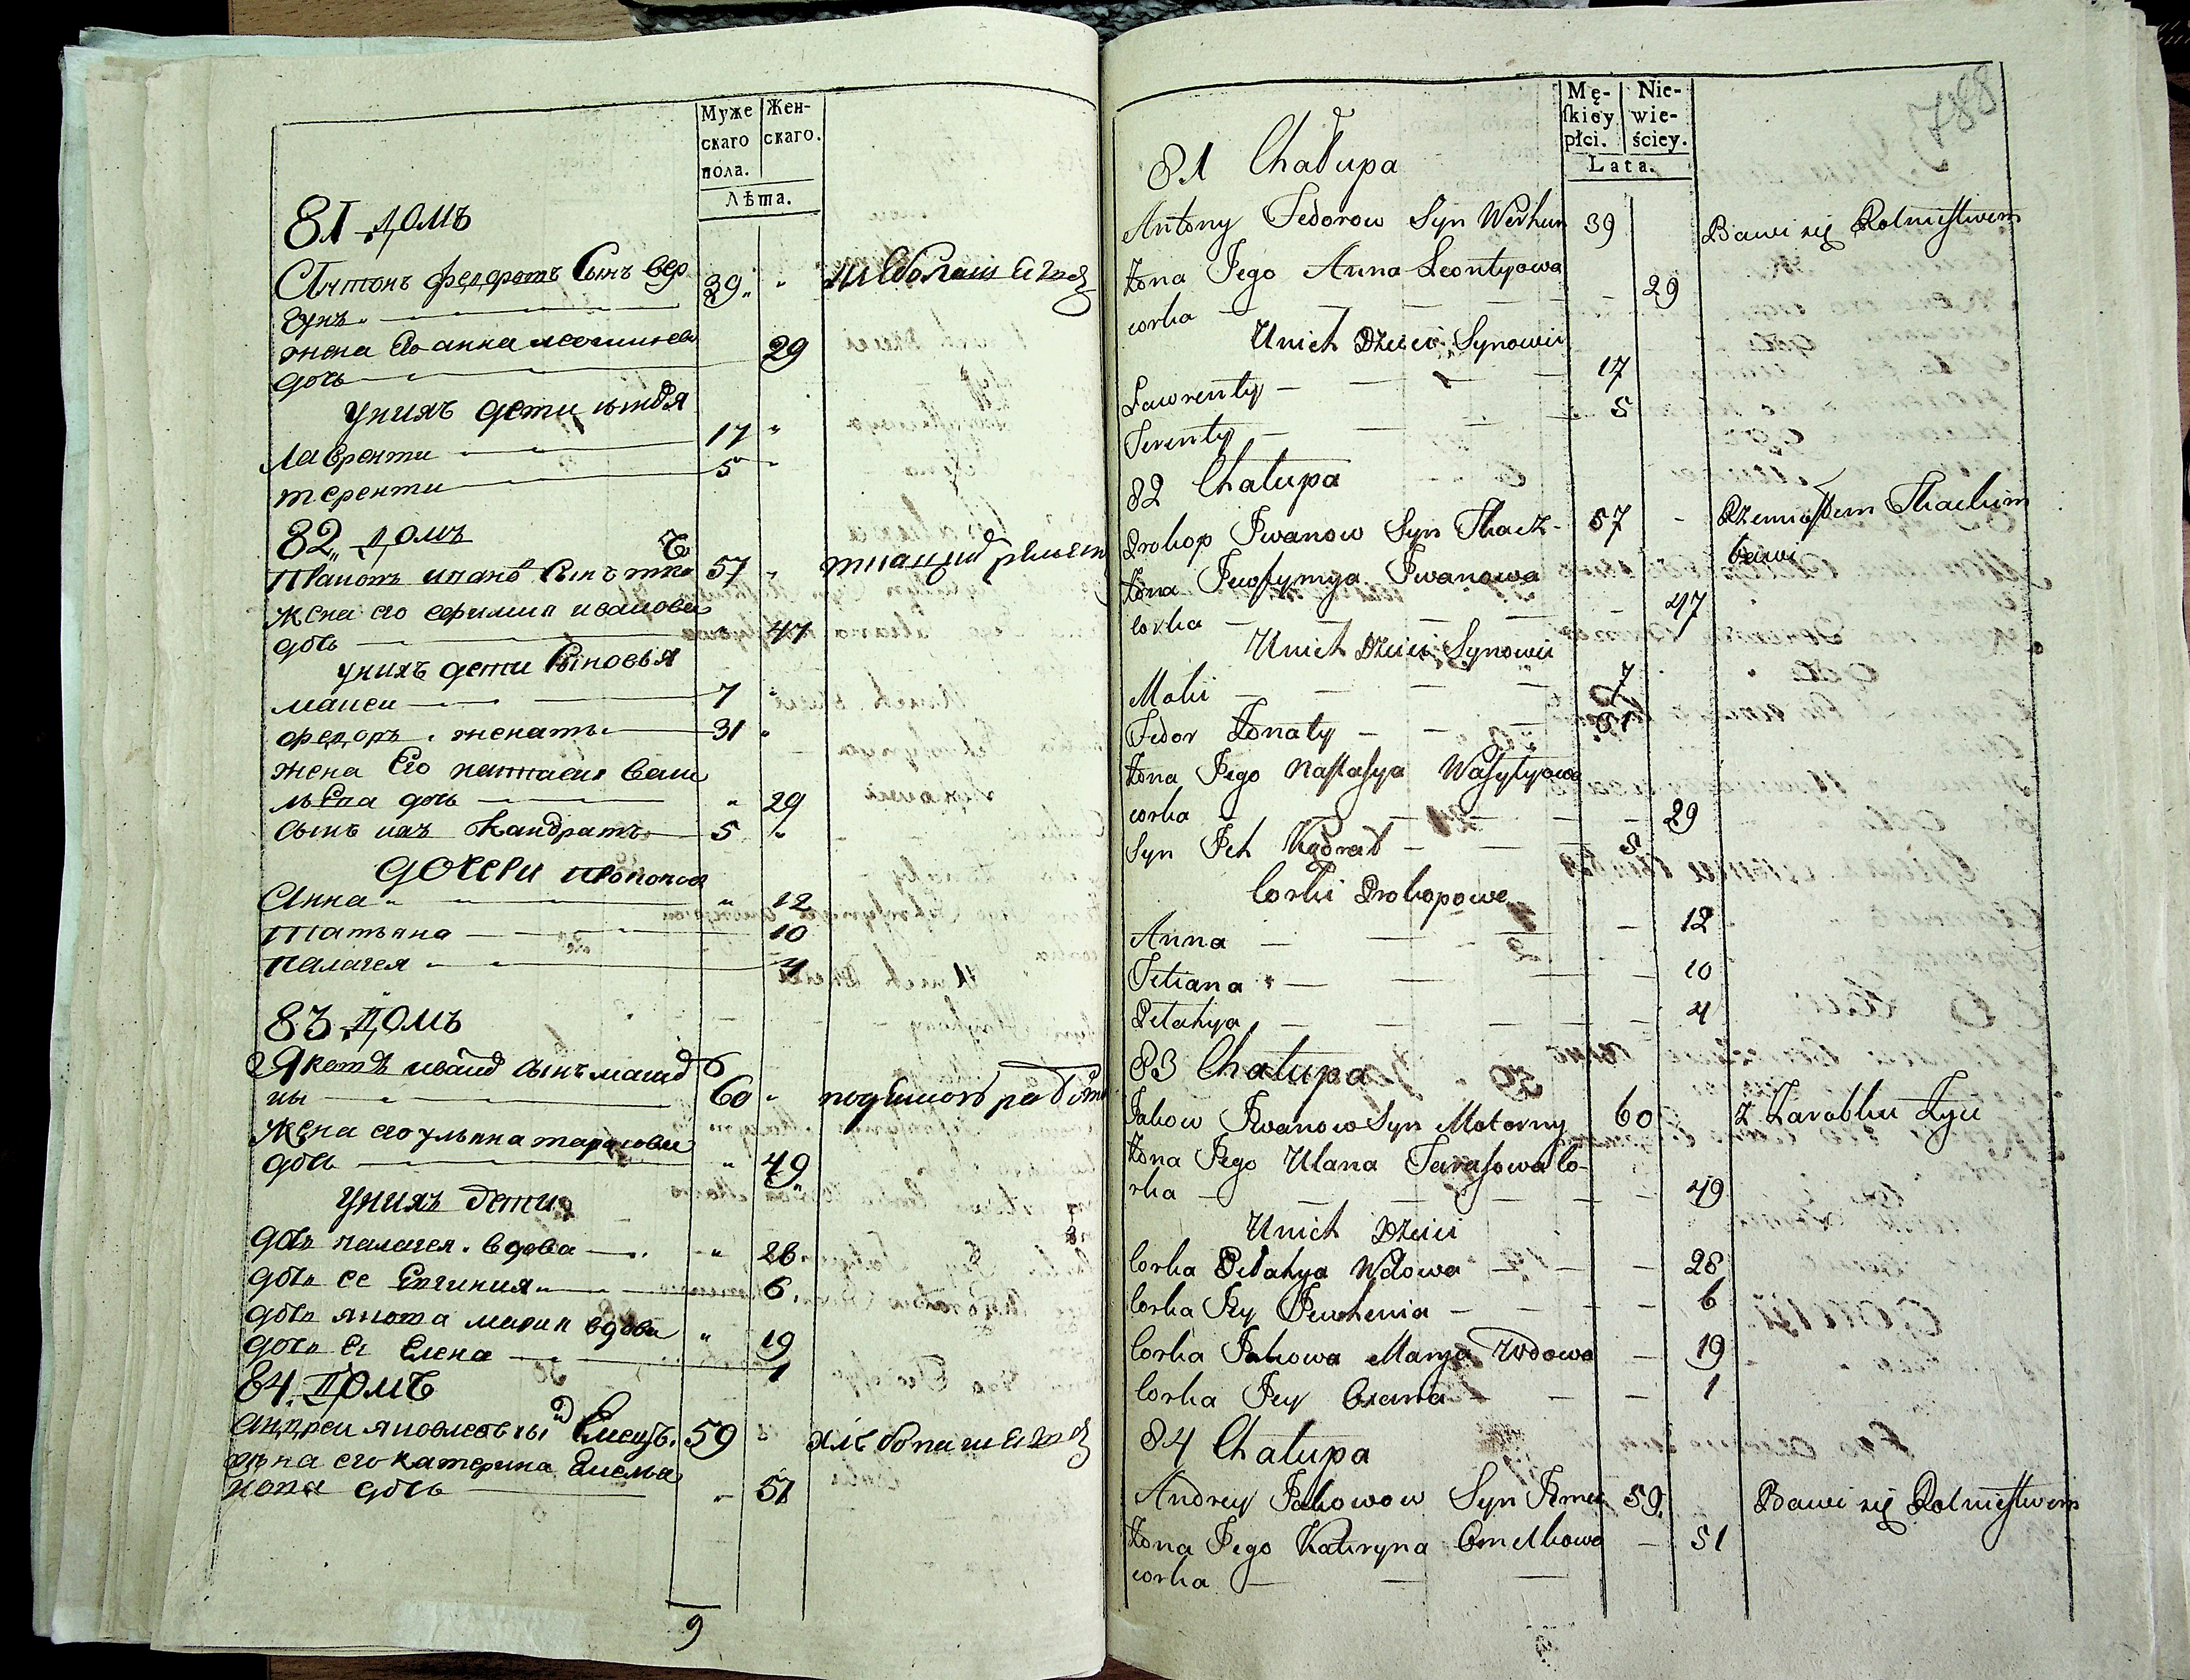 Муже
скаго
пола.
Жен-
скаго.
Лѣта.
81 домъ
Антонъ федоровъ Сынъ вер
гунъ 39
жена Его анна леонтиева
дочь 29
униxъ дети сыновя
Лаврентии 17
терентии 5
82 домъ
Прокопъ иванов Сынъ ткачь 57
жена его ефимия иванова
дочь 47
унихъ дети Сыновья
мокеи 7
федоръ женатъ 31
жена Его настасия васи
лѣва дочь 29
сынъ ихъ Кандратъ 5
дочери прокопов
Анна 12
Татьяна 10
палагея 4
83 домъ
Яковъ иванов сынъ матор
ны 60
жена его ульяна тарасова
дочь 49
унихъ дети
дочь палагея вдова 28
дочь ее Евгиния 6
дочь якова мария вдова 19
дочь ее Елена 1
84 домъ
андреи яковлевъ сы Емецъ 59
жена его катерина Емелья
нова дочь 51
9
788
Mę-
skiey
płci.
Nie-
wie-
ściey.
Lata.
81 Chałupa
Antony Fedorow Syn Werhun 39 Bawi się Rolnictwem
Żona Jego Anna Leontyowa
corka 29
Unich Dzieci Synowie
Lawrenty 17
Terenty 5
82 Chałupa
Prokop Iwanow Syn Tkacz 57 Rzemiosłem Tkackim
bawi
Żona Jewfymya Iwanowa
corka 47
Unich Dzieci Synowie
Moki 7
Fedor Żonaty 31
Żona Jego Nastasya Wasylyowa
corka 29
Syn Ich Kądrat 5
Corki Prokopowe
Anna 12
Tetiana 10
Pelahya 4
83 Chałupa
Jakow Iwanow Syn Motorny 60 Z Zarobku Żyie
Żona Jego Ulana Tarasowa co-
rka 49
Unich Dzieci
Corka Pelahya Wdowa 28
Corka Jey Jewhenia 6
Corka Jakowa Marya Wdowa 19
Corka Jey Olena 1
84 Chałupa
Andrey Jakowow Syn Jemec 59 Bawi się Rolnictwem
Żona Jego Kateryna Omelkowa 51
corka